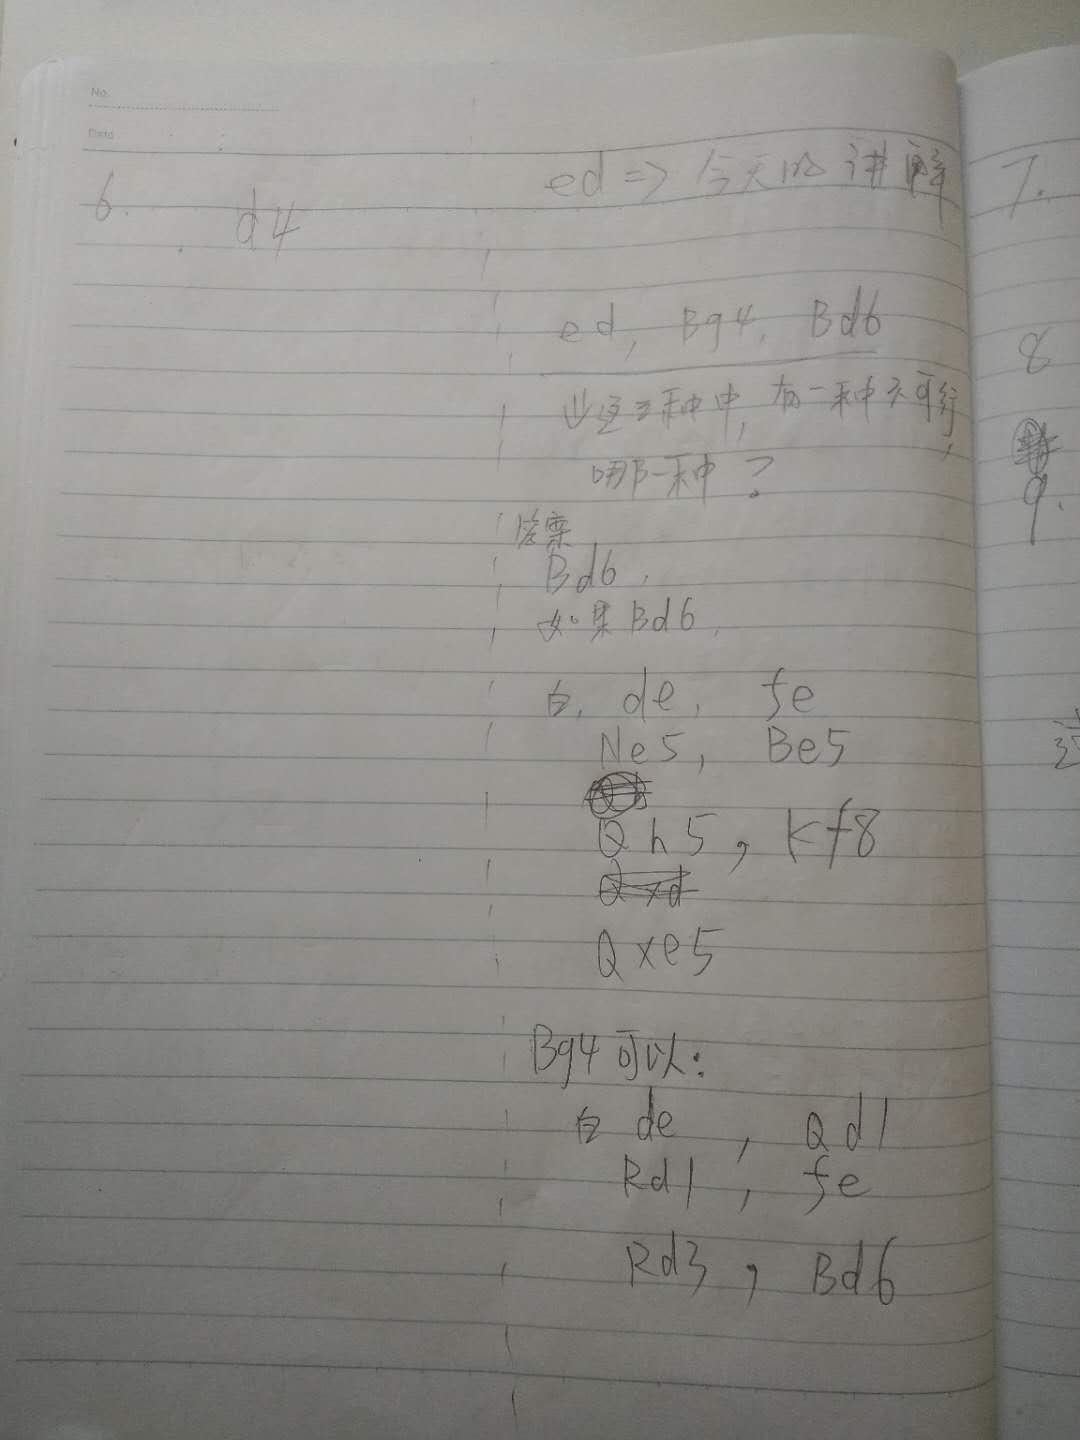 No.
Date
6. d4
ed => 今天的讲解
ed, Bg4, Bd6
这三种中, 有一种不可行,
哪一种?
答案
Bd6.
如果Bd6.
白, de, fe
Ne5, Be5
Qh5, Kf8
Qxe5
Bg4可以:
白 de, Qd1
Rd1, fe
Rd3, Bd6
7.
8
9.